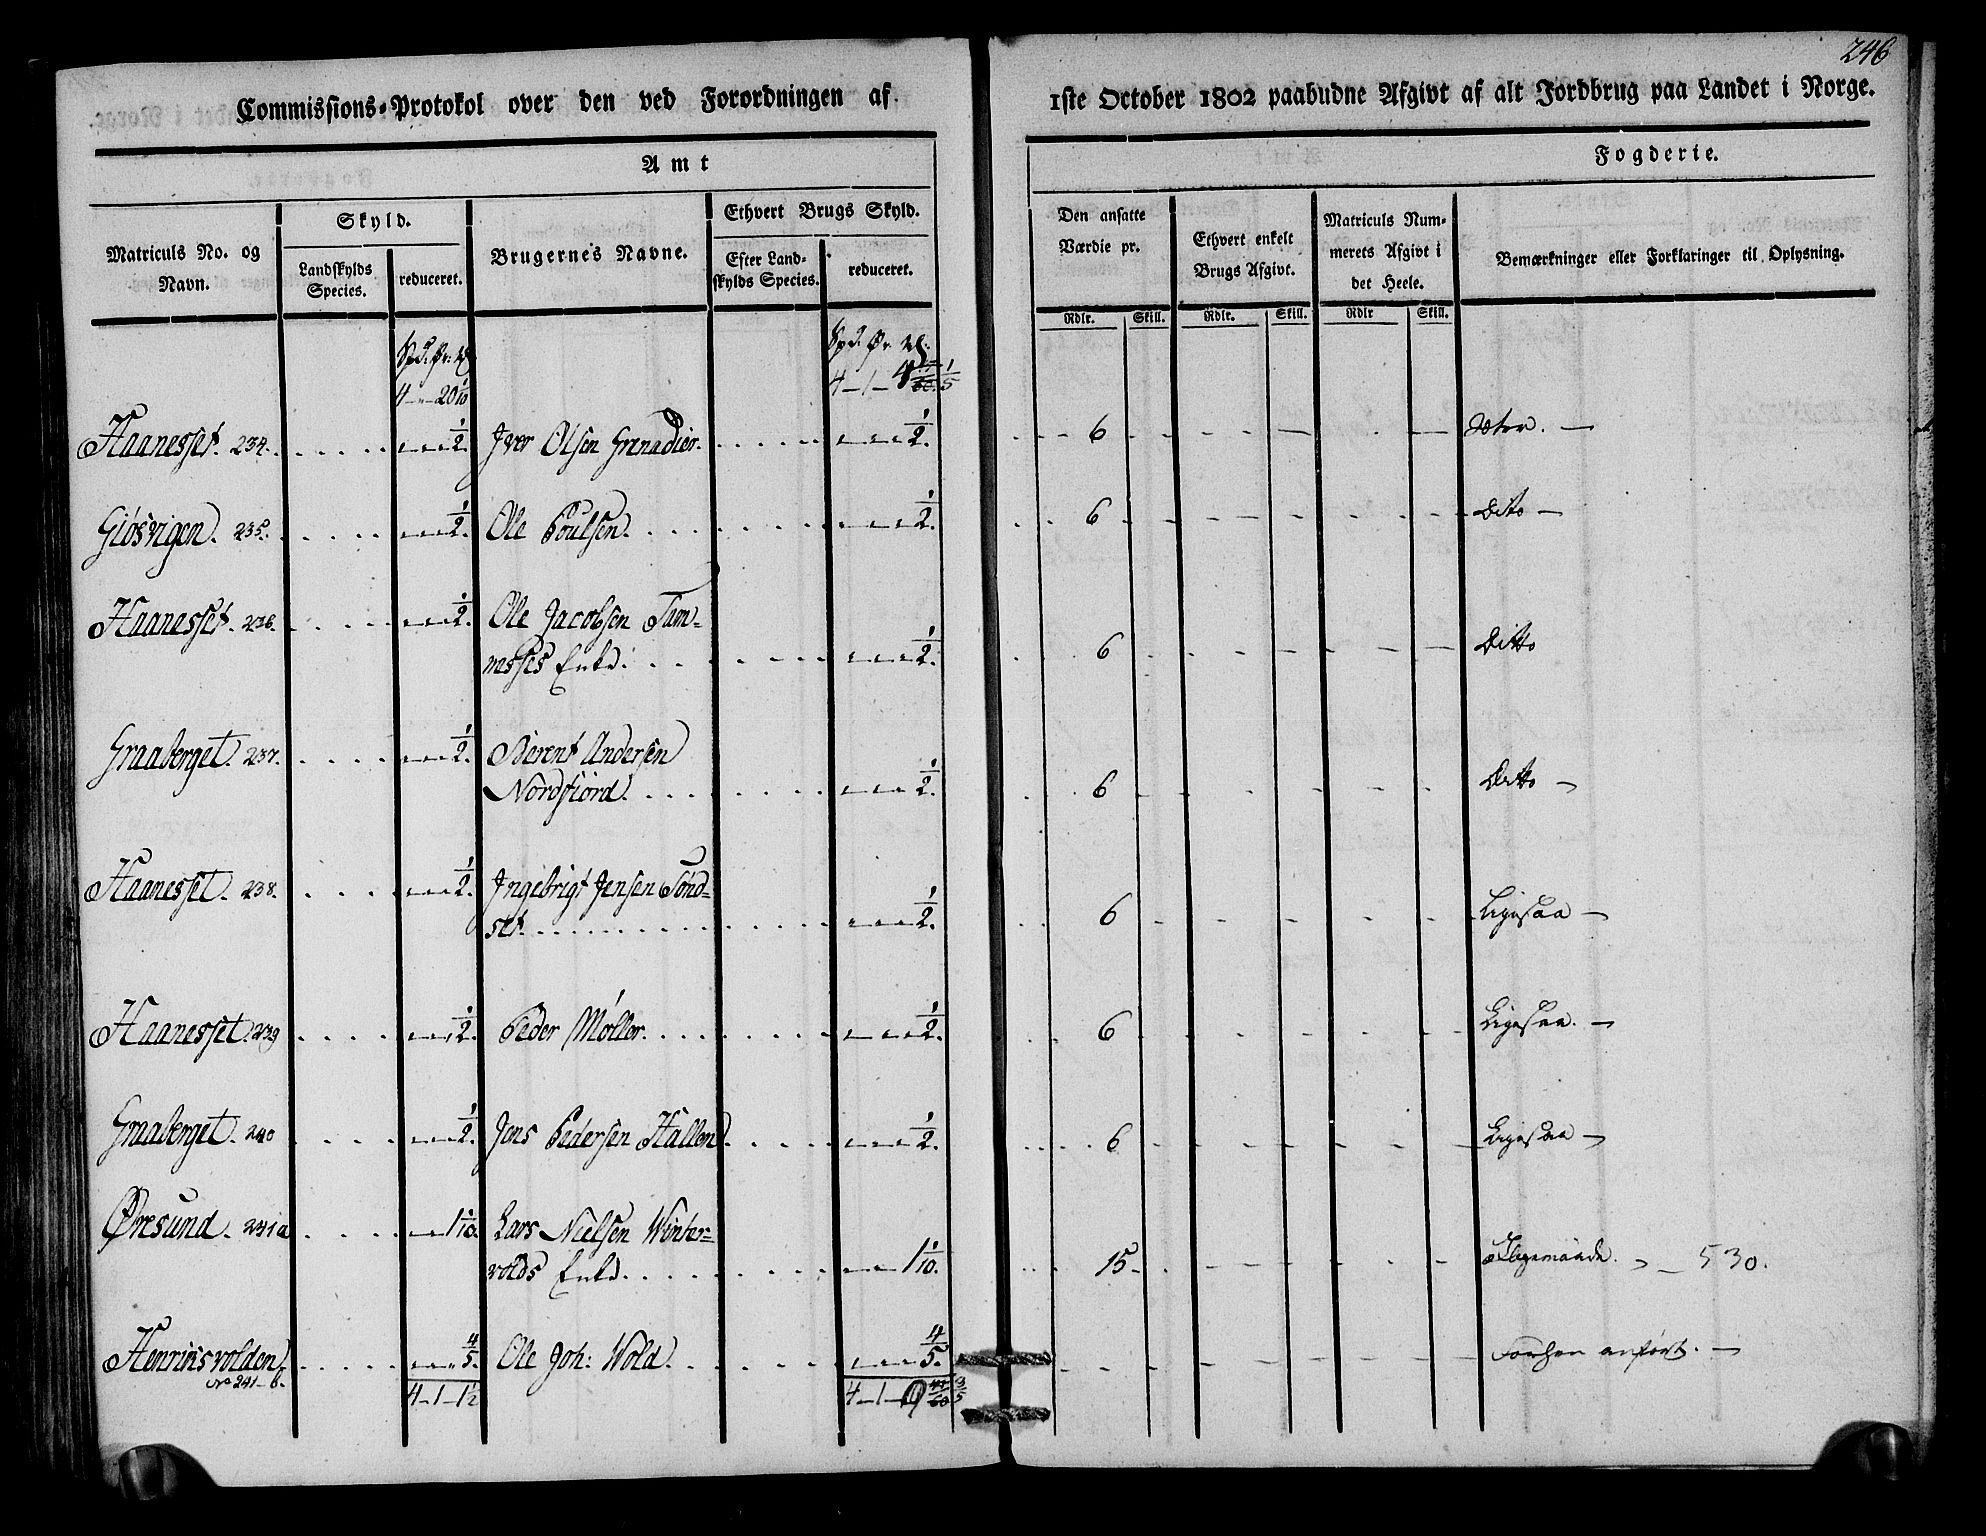 246
Commissions-Protokol over den ved Forordningen af 1ste October 1802 paabudne Afgivt af alt Jordbrug paa Landet i Norge.
Amt Fogderie.
Matriculs No. og Navn. Skyld. Landskylds Species. reduceret. Brugernes Navne. Ethvert Brugs Skyld. Efter Landskylds Species. reduceret. Den ansatte Værdie pr. Ethvert enkelt Brugs Afgivt. Matriculs Nummerets Afgivt i det Heele. Bemærkninger eller Forklaringer til Oplysning.
Rdlr. Skill. Rdlr. Skill. Rdlr Skill.
Spd. Ør. Spd. Ør.
4 - " - 20 1/10 4 - 1 - 4 1/5
Haanesset. 234. 1/2. Iver Olsen Grenadier. 1/2. 6 Sæter.
Giøsvigen. 235. 1/2. Ole Poulsen. 1/2. 6 Dito
Haanesset. 236. 1/2. Ole Jacobsen Tam=
messes Enke: 1/2. 6 Ditto
Graaberget. 237. 1/2. Berent Andersen
Nordfiord. 1/2. 6 Ditto
Haanesset. 238. 1/2. Ingebrigt Jensen Tønd=
set. 1/2. 6 Ligesaa
Haanesset. 239 1/2. Peder Møller. 1/2. 6 Ligesaa.
Graaberget. 240 1/2. Jens Pedersen Hallen 1/2. 6 Ligesaa
Øresund. 241a 1 1/10. Lars Nielsen Winter=
volds Enke. 1 1/10. 15 530.
Henriksvolden. 4/5. Ole Joh: Wold. 4/5. Forhen anført.
No 241-b.
4 - 1 - 1 1/2 4 - 1 - 9 3/5